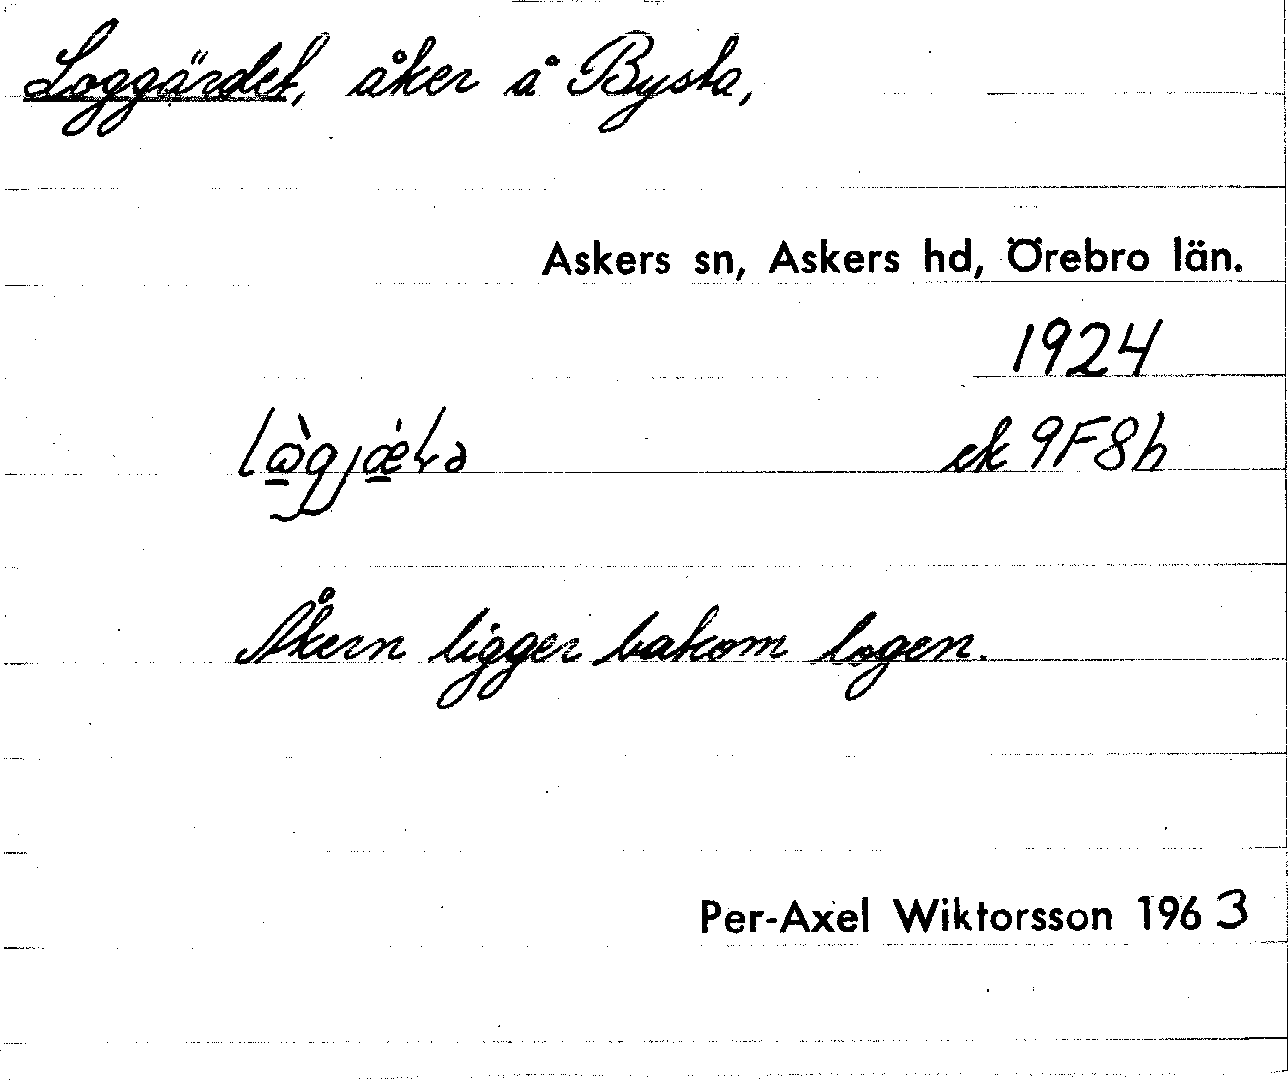 Loggärdet, åker å Bysta,
Askers sn, Askers hd, Örebro län.
1924
ek 9F8h
Åkern ligger bakom logen.
Per-Axel Wiktorsson 1963